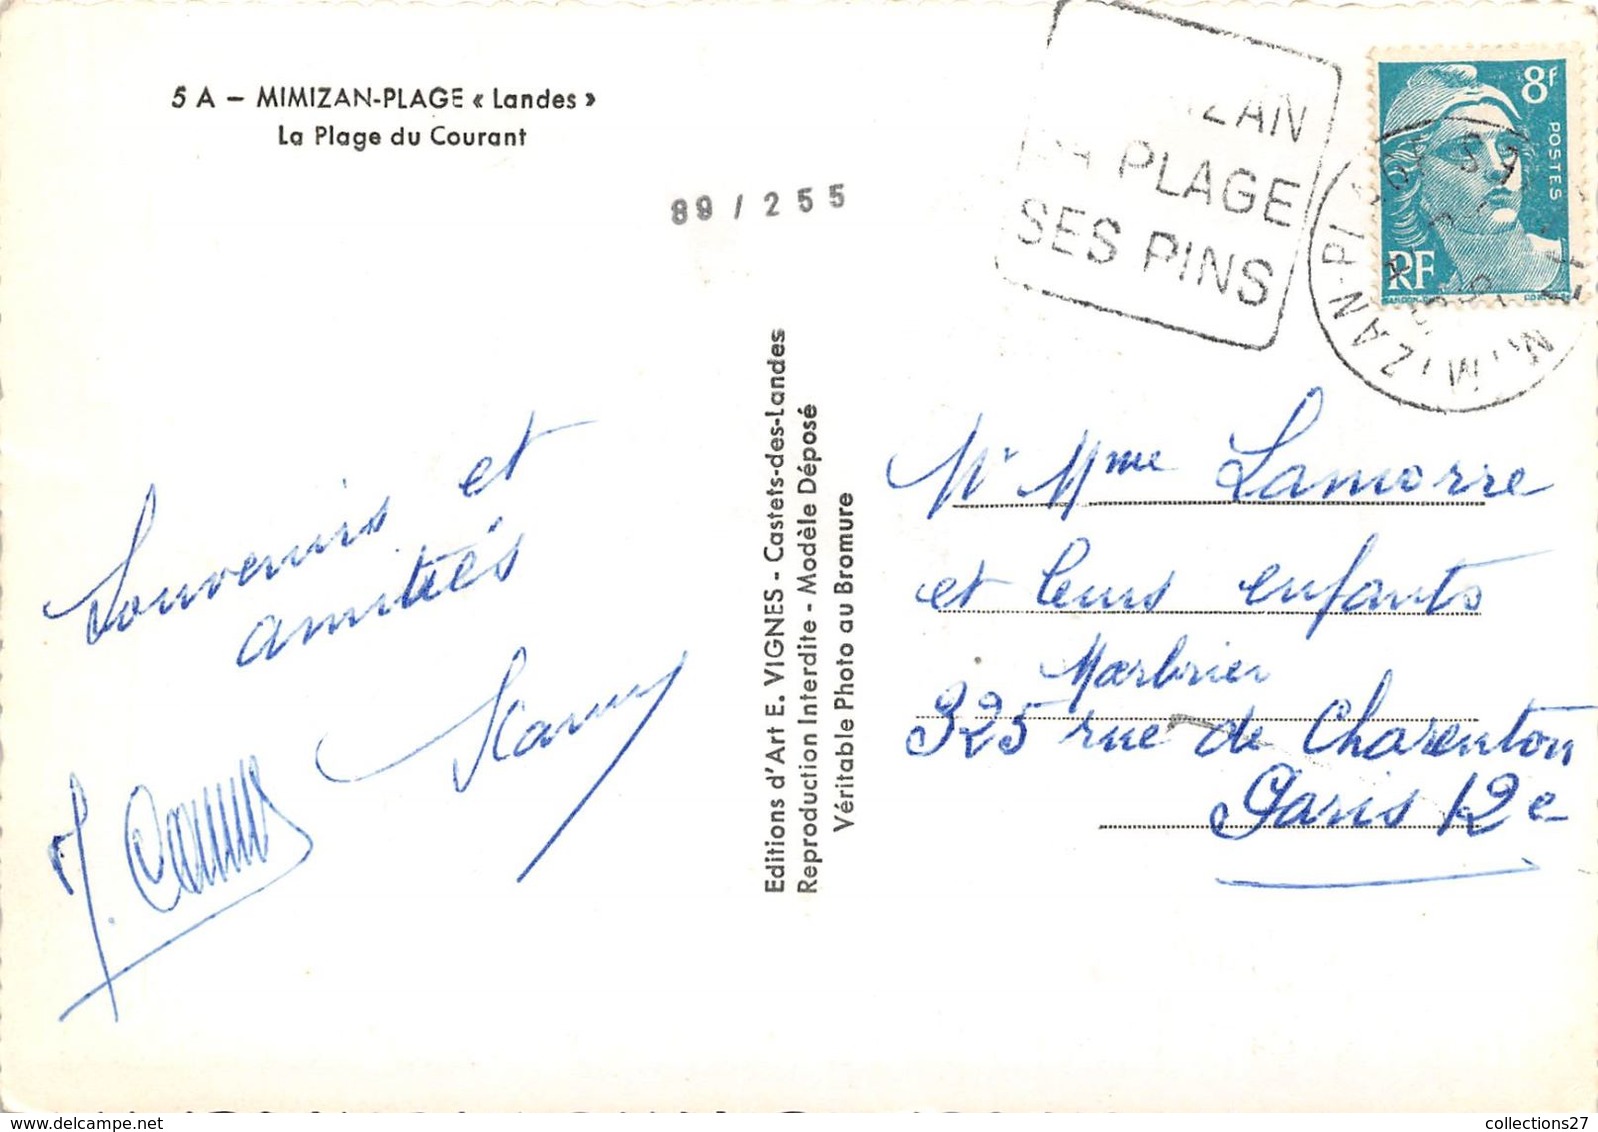 5 A – MIMIZAN-PLAGE « Landes »
La Plage du Courant
89 / 255
IZAN
PLAGE
SES PINS
8f
POSTES
RF
MIMIZAN-PL
Souvenirs et
amitiés
J.
Editions d'Art E. VIGNES - Castets-des-Landes
Reproduction Interdite - Modèle Déposé
Véritable Photo au Bromure
Mr Mme Lamorre
et leurs enfants
Marbrier
325 rue de Charenton
Paris 12e
collections27